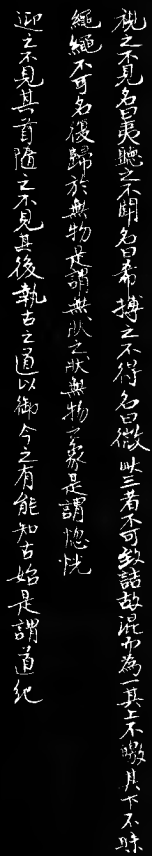 視之不見名曰夷聽之不聞名曰希搏之不得名曰微此三者不可致詰故混而為一其上不皦其下不昧
繩繩不可名復歸於無物是謂無狀之狀無物之象是謂惚恍
迎之不見其首隨之不見其後執古之道以御今之有能知古始是謂道紀